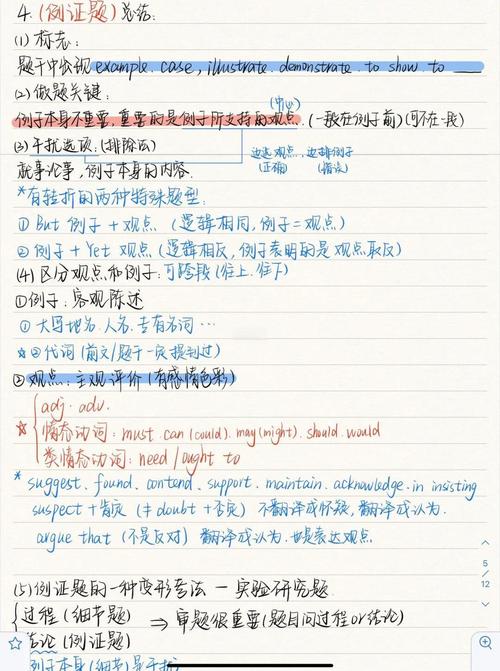 4.(例证题)总结:
(1) 标志:
题干中出现 example. case, illustrate. demonstrate. to show. to
(2) 做题关键:
(中心)
例子本身不重要,重要的是例子所支持的观点.(一般在例子前)(可不在一段)
(3) 干扰选项:(排除法)
边选观点,边排例子
(正确) (错误)
就事论事,例子本身的内容.
*有转折的两种特殊题型:
① But 例子 + 观点 (逻辑相同,例子=观点)
② 例子 + Yet 观点 (逻辑相反,例子表明的是观点取反)
(4) 区分观点和例子:可跨段(往上.往下)
①例子:客观陈述
① 大写地名.人名.专有名词…
☆②代词(前文/题干一定提到过)
②观点:主观评价(有感情色彩)
adj. adv.
☆ 情态动词: must. can (could). may(might). should. would
类情态动词: need / ought to
* suggest. found. contend. support. maintain. acknowledge. in insisting
suspect + 肯定 (≠ doubt + 否定) 不翻译成怀疑,翻译成认为.
argue that (不是反对) 翻译成认为.也是表达观点.
5
12
(5)例证题的一种变形考法 — 实验研究题
过程(细节题) ⇒ 审题很重要(题目问过程or结论)
结论(例证题)
例子本身(细节)是干扰